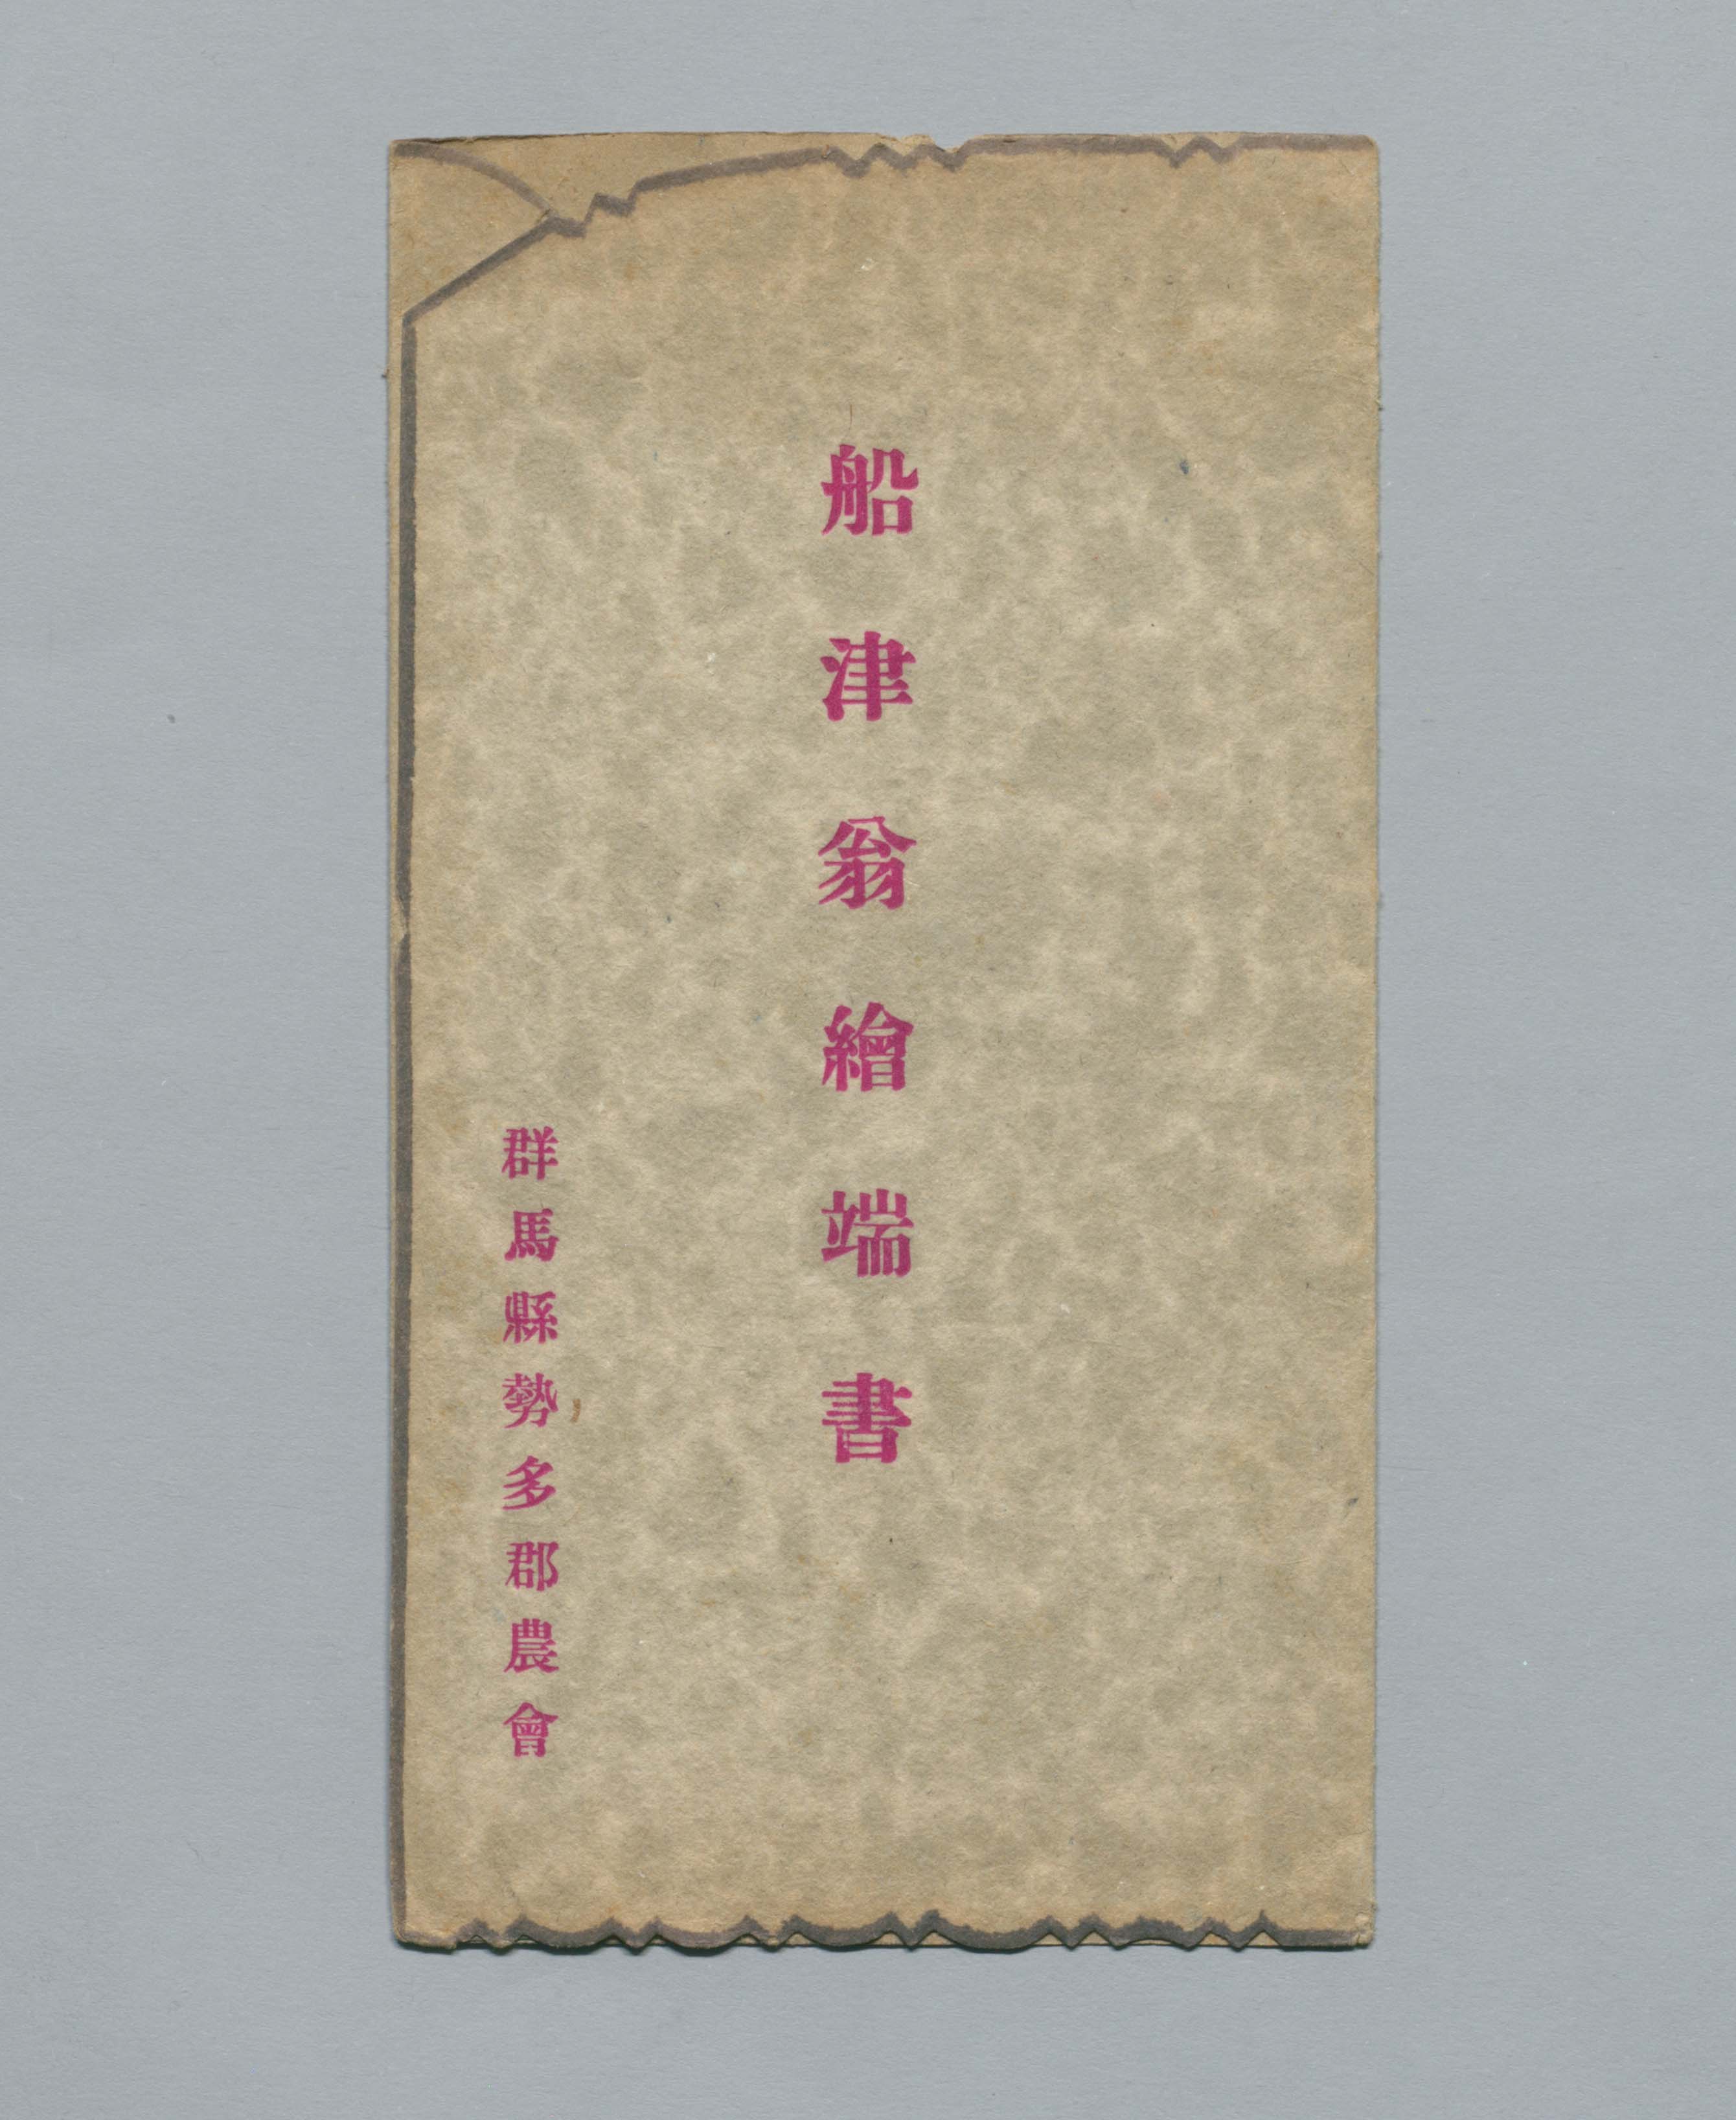 船津翁繪端書
群馬縣勢多郡農會